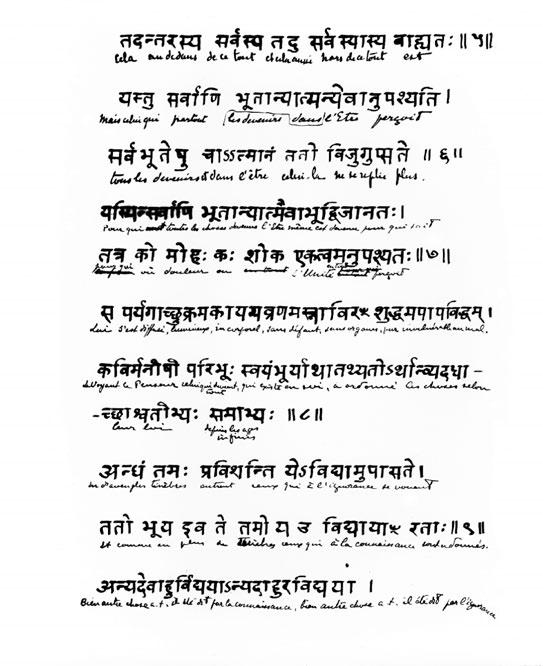 तदन्तरस्य सर्वस्य तदु सर्वस्यास्य बाह्यतः ॥ ५॥
cela au dedans de ce tout et cela aussi hors de ce tout est
यस्तु सर्वाणि भूतान्यात्मन्येवानुपश्यति ।
Mais celui qui partout les devenirs dans l'Etre perçoit
सर्वभूतेषु चाऽऽत्मानं ततो विजुगुप्सते ॥ ६॥
tous les devenirs et dans l'être celui-là ne se replie plus.
यस्मिन्सर्वाणि भूतान्यात्मैवाभूद्विजानतः ।
Pour qui toutes les choses devenues l'être même est devenu pour qui sait
तत्र को मोहः कः शोक एकत्वमनुपश्यतः ॥७॥
où douleur ou l'Unité perçoit
स पर्यगाच्छुक्रमकायमव्रणमस्नाविरँ शुद्धमपापविद्धम् ।
Lui s'est diffusé, lumineux, incorporel, sans défaut, sans organes, pur invulnérable au mal.
कविर्मनीषी परिभूः स्वयंभूर्याथातथ्यतोऽर्थान्व्यदधा -
le Voyant le Penseur celui qui devient tout, qui existe en soi, a ordonné les choses selon
-च्छाश्वतीभ्यः समाभ्यः ॥८॥
leur loi depuis les ages infinis
अन्धं तमः प्रविशन्ति येऽविद्यामुपासते ।
d'aveugles ténèbres entrent ceux qui à l'ignorance se vouent
ततो भूय इव ते तमो य उ विद्यायाँ रताः ॥९॥
et comme en plus de ténèbres ceux qui à la connaissance sont adonnés.
अन्यदेवाहुर्विद्ययाऽन्यदाहुरविद्यया ।
Bien autre chose a.t. il été dit par la connaissance, bien autre chose a.t. il été dit par l'ignorance